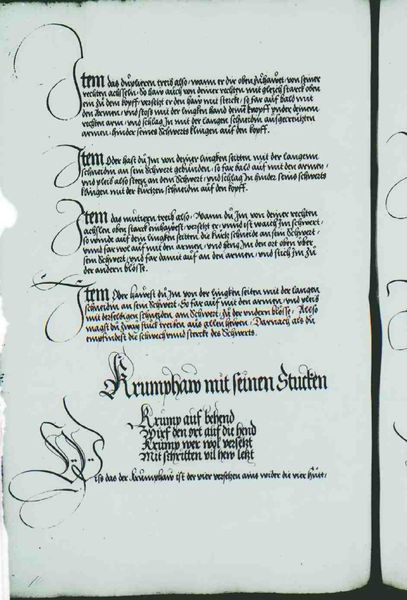 Item das duplieren treib also, wann er dir oben zuhauet, von seiner
rechten achsseln, So haw auch von deiner rechten mit gleich starck oben
ein zu dem kopff, versetzt er den haw mit sterck, so far auf bald mit
den Armen, und stoß mit der lingken hand deinn knopff under deinenn
rechten arm, und schlag In mit der langen schneidn aus gecreutzten
armen, hinder seines schwerts klingen auf den kopff.
Item Oder hast du Im von deyner lingken seitten mit der langenn
schneidn an sein Schwert gebunden, so far bald auf mit den armen,
und pleib also steeg an dem Schwert, und schlag In hinder seins schwerts
klingen mit der kurtzen schneidn auf den kopff.
Item das mutiern treib also, Wann du Im von deiner rechten
achsslen oben starck einhawest, versetzt er, unnd ist waich Im schwert,
so winde auf dein lingken seitten die kurtz schneid an sein Schwert,
unnd far wol auf mit den armen, und heng Im den ort oben uber
sein Schwert, und far damit auf an den armen, und stich Im zu
der andern blosse.
Item Oder hawest du Im von der Lingken seiten mit der langen
schneidn an sein Schwert. So far auf mit den armen, und pleib
mit derselbigen schneidn am Schwert, zu der undern blosse. Also
magst du zway stuck treiben aus allen hewen, Darnach als du
empfindest die schwech unnd sterck des Schwerts.
Krumphaw mit seinen Stucken
Krump auf behend
Wirf den ort auf die hend
Krump wer wol versetzt
Mit schritten vil hew letzt
Wiss das der krumphaw ist der vier versetzen ains wider die vier huet,